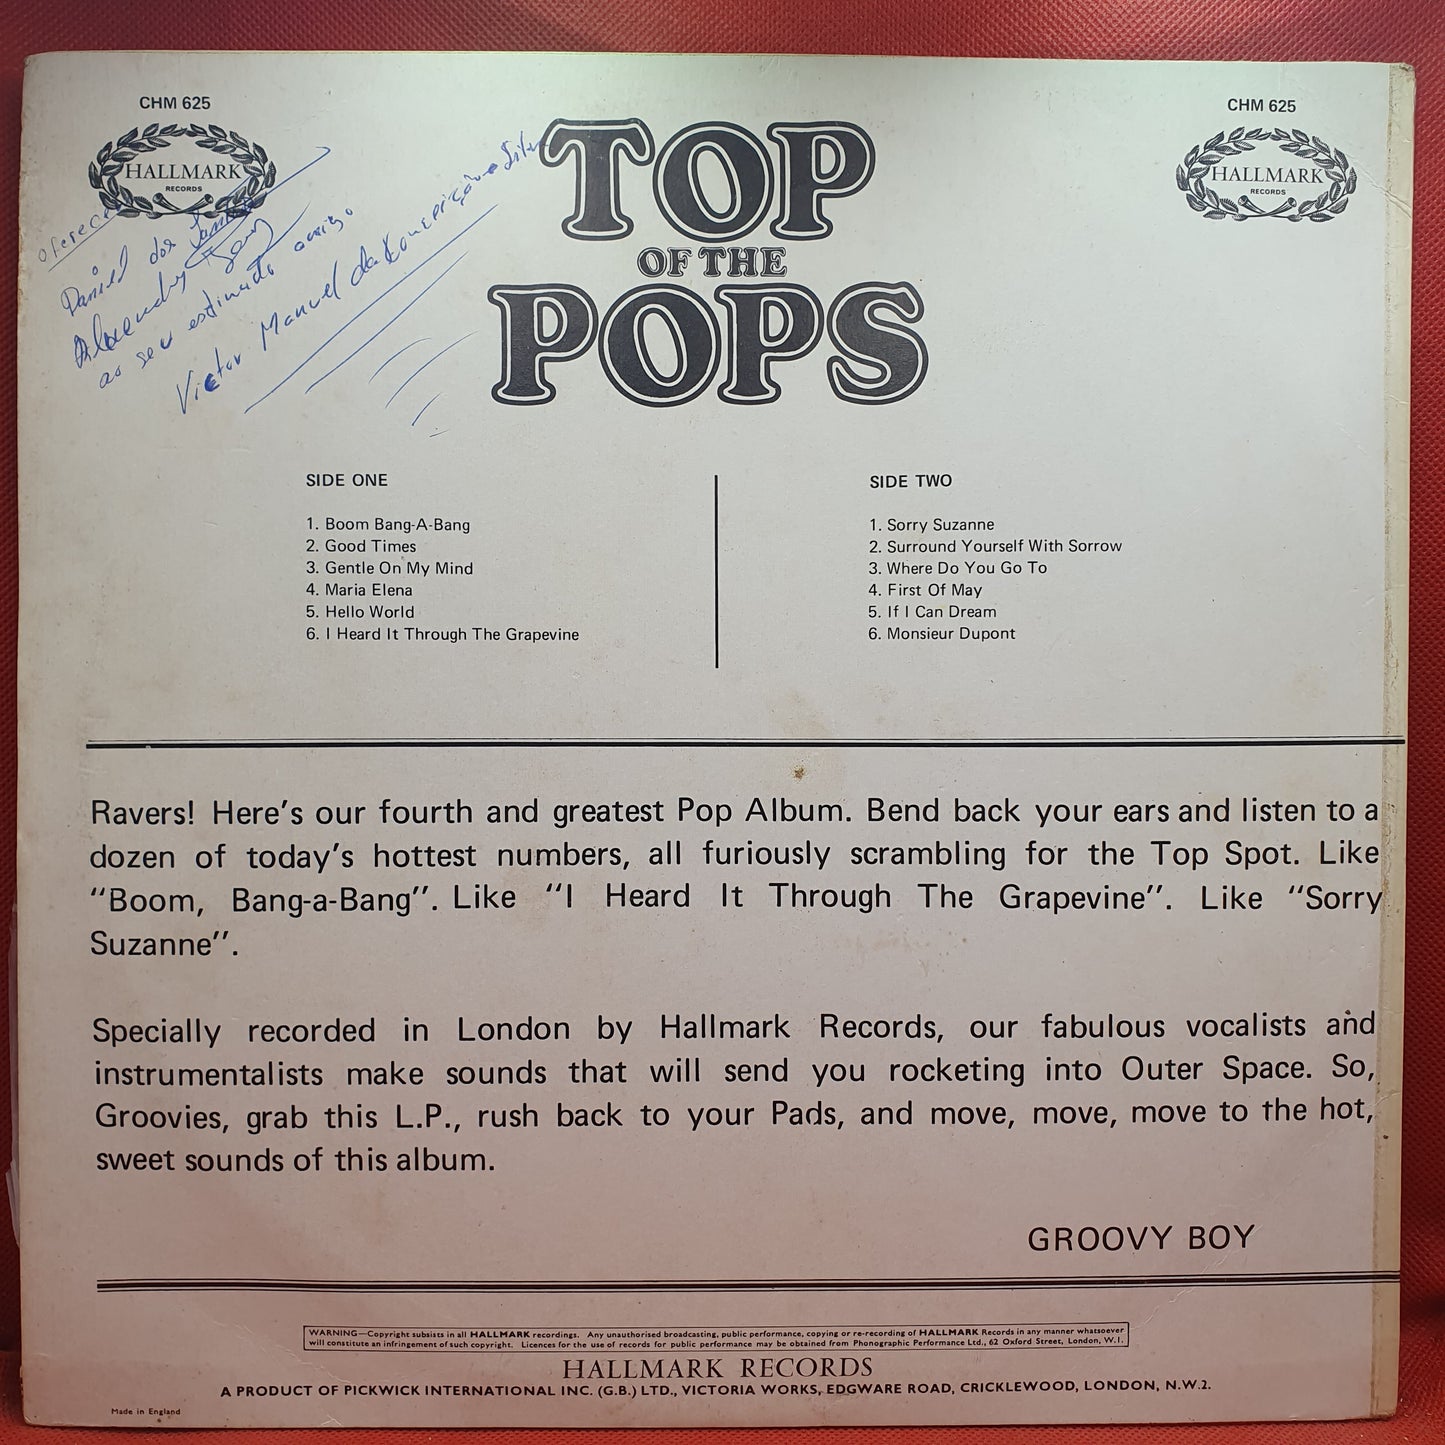 CHM 625
HALLMARK
RECORDS
CHM 625
HALLMARK
RECORDS
oferece
Daniel dos
ao seu estimado amigo
Victor Manuel da
TOP
OF THE
POPS
SIDE ONE
1. Boom Bang-A-Bang
2. Good Times
3. Gentle On My Mind
4. Maria Elena
5. Hello World
6. I Heard It Through The Grapevine
SIDE TWO
1. Sorry Suzanne
2. Surround Yourself With Sorrow
3. Where Do You Go To
4. First Of May
5. If I Can Dream
6. Monsieur Dupont
Ravers! Here's our fourth and greatest Pop Album. Bend back your ears and listen to a
dozen of today's hottest numbers, all furiously scrambling for the Top Spot. Like
"Boom, Bang-a-Bang". Like "I Heard It Through The Grapevine". Like "Sorry
Suzanne".
Specially recorded in London by Hallmark Records, our fabulous vocalists and
instrumentalists make sounds that will send you rocketing into Outer Space. So,
Groovies, grab this L.P., rush back to your Pads, and move, move, move to the hot,
sweet sounds of this album.
GROOVY BOY
WARNING—Copyright subsists in all HALLMARK recordings. Any unauthorised broadcasting, public performance, copying or re-recording of HALLMARK Records in any manner whatsoever
will constitute an infringement of such copyright. Licences for the use of records for public performance may be obtained from Phonographic Performance Ltd., 62 Oxford Street, London, W.1.
HALLMARK RECORDS
A PRODUCT OF PICKWICK INTERNATIONAL INC. (G.B.) LTD., VICTORIA WORKS, EDGWARE ROAD, CRICKLEWOOD, LONDON, N.W.2.
Made in England